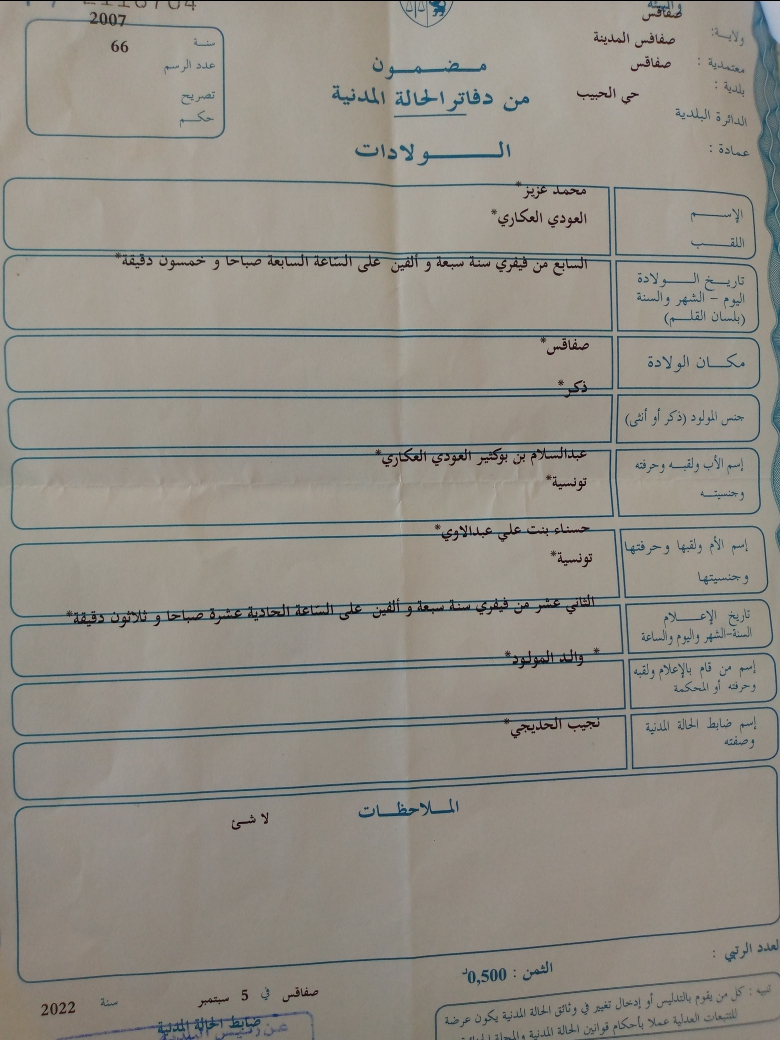 2007
سنة
66
عدد الرسم
تصريح
حكـم
والبيئة
صفاقس
ولاية:
صفاقس المدينة
معتمدية :
صفاقس
بلدية :
حي الحبيب
الدائرة البلدية
عمادة :
مضمــون
من دفاتر الحالة المدنية
الــولادات
الإســم
محمد عزيز*
اللقـب
العودي العكاري*
تاريخ الــولادة
اليوم - الشهر والسنة
(بلسان القلـم)
السابع من فيفري سنة سبعة و ألفين على السّاعة السابعة صباحا و خمسون دقيقة*
مكـان الولادة
صفاقس*
جنس المولود (ذكر أو أنثى)
ذكر*
إسم الأب ولقبـه وحرفته
وجنسيتـه
عبدالسلام بن بوكثير العودي العكاري*
تونسية*
إسم الأم ولقبها وحرفتها
وجنسيتها
حسناء بنت علي عبدالاوي*
تونسية*
تاريخ الإعـلام
السنة-الشهر واليوم والساعة
الثاني عشر من فيفري سنة سبعة و ألفين على السّاعة الحادية عشرة صباحا و ثلاثون دقيقة*
إسم من قام بالإعلام ولقبه
وحرفته أو المحكمة
* والد المولود*
إسم ضابط الحالة المدنية
وصفته
نجيب الحديجي*
المـلاحظـات
لا شئ
لعدد الرتبي :
الثمن : 0,500د
صفاقس في 5 سبتمبر سنة 2022
ضابط الحالة المدنية
تنبيه : كل من يقوم بالتدليس أو إدخال تغيير في وثائق الحالة المدنية يكون عرضة
للتتبعات العدلية عملا بأحكام قوانين الحالة المدنية والمجلة الجنائية